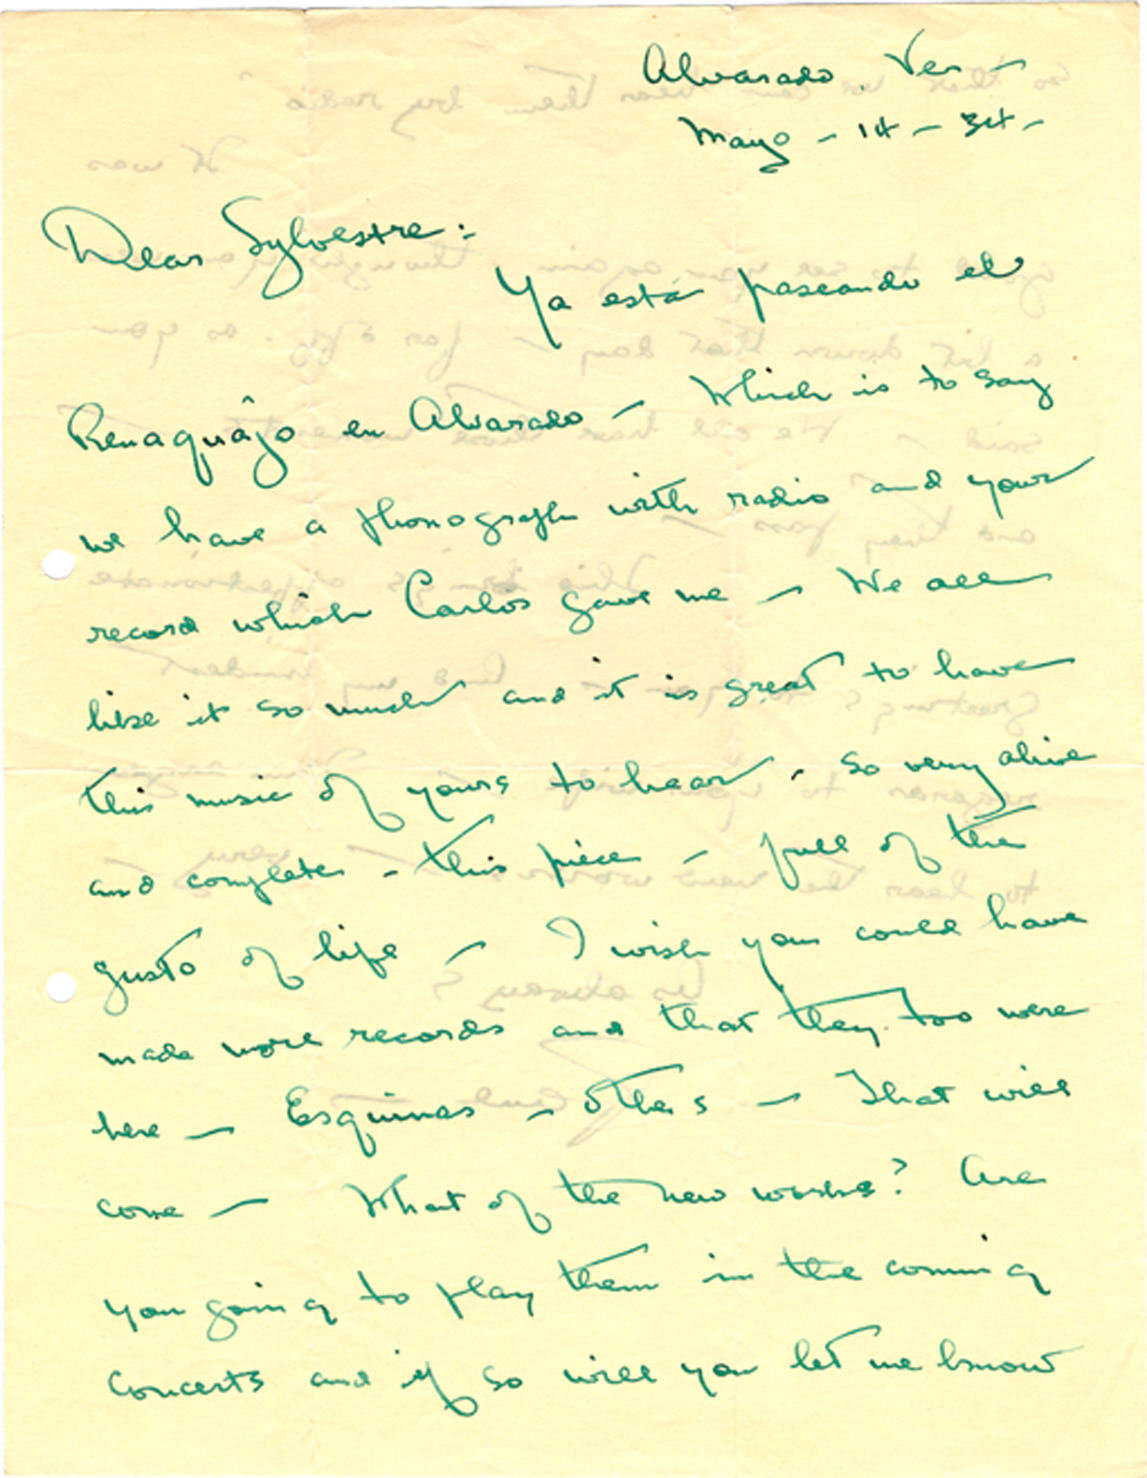 Alvarado. Ver —
Mayo — 14 — 34 —
Dear Sylvestre:
Ya está paseando el
Renaquâjo en Alvarado — Which is to say
we have a phonograph with radio and your
record which Carlos gave me — We all
like it so much and it is great to have
this music of yours to hear - so very alive
and complete - this piece — full of the
gusto of life — I wish you could have
made more records and that they too were
here — Esquinas — others — That will
come — What of the new works? Are
you going to play them in the coming
concerts and if so will you let me know